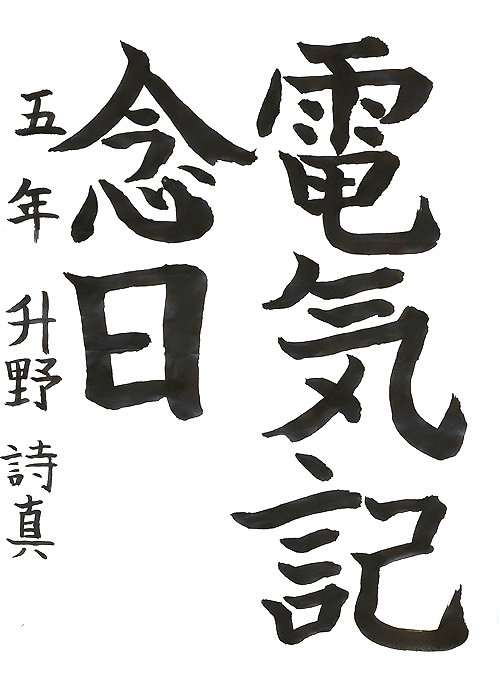 電気記
念日
五年 升野 詩真